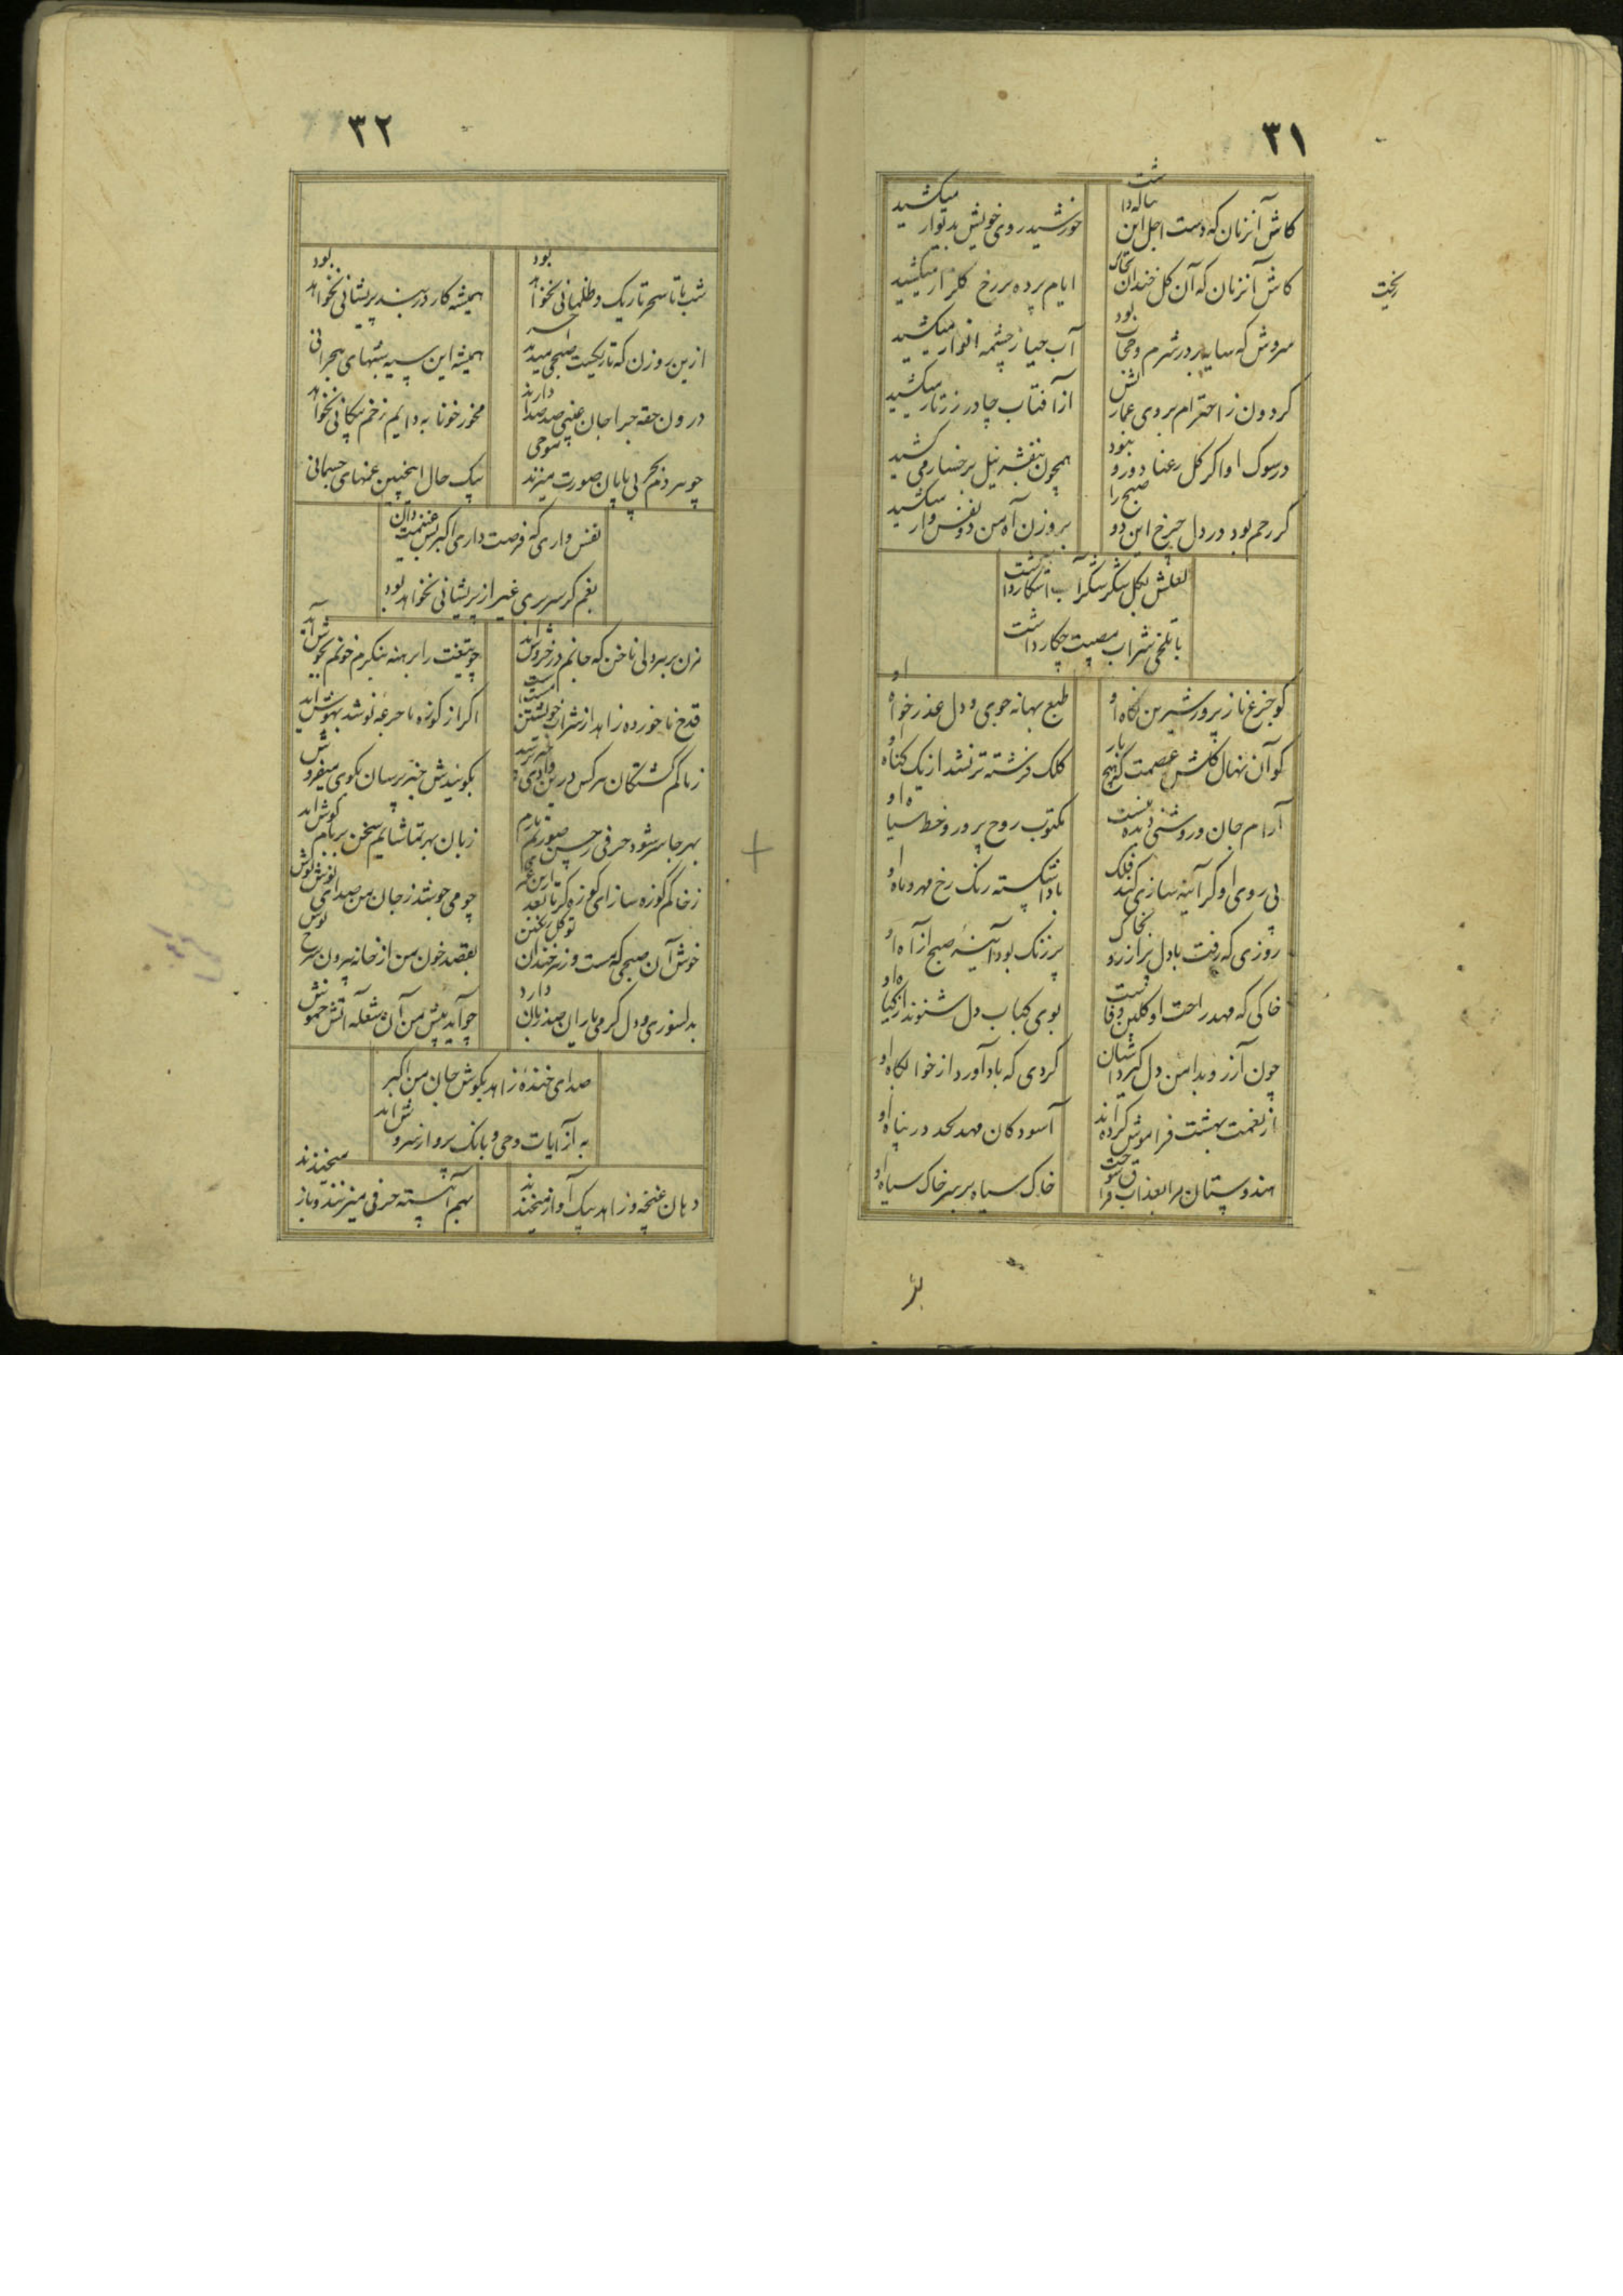 ۳۱
کاش آنزمان که دست اجل این بناله داشت
خورشید روی خویش بدیوار میکشید
کاش آنزمان که آن گل خندان بخاک ریخت
ایام پرده بر رخ گلزار میکشید
سروش که سایه بر در شرم و حجاب بود
آب حیا ز چشمه انوار میکشید
گردون ز احترام بروی عماریش
از آفتاب چادر زرتار میکشید
در سوک او اگر گل رعنا دورو نبود
همچون بنفشه نیل برخسار می کشید
گر رحم بود در دل چرخ این دو صبح را
بر وزن آه من دو نفس وار میکشید
لعلش بگل شکر شکرآب آشکار داشت
با تلخی شراب مصیبت چکار داشت
کو جزع ناز پرور شیرین نگاه او
طبع بهانه جوی و دل عذر خواه او
کو آن نهال گلشن عصمت که هیچ بار
کلک فرشته تر نشد از یک گناه او
آرام جان و روشنی دیده نیست
مکتوب روح پرور و خط سیاه او
بی روی او گر آینه سازی کند فلک
بادا شکسته رنگ رخ مهر و ماه او
روزی که رفت با دل پر آرزو بخاک
پر زنگ بود آینه صبح از آه او
خاکی که مهد راحت او گلبن وفاست
بوی کباب دل شنوند از گیاه او
چون آرزو بدامن دل گیرد آشیان
گردی که باد آورد از خوابگاه او
از نعمت بهشت فراموش کرده اند
آسودگان مهد لحد در پناه او
هندوستان مرا بعذاب فراق سوخت
خاک سیاه بر سر خاک سیاه او
۳۲
شب ما تا سحر تاریک و ظلمانی نخواهد بود
همیشه کار در بند پریشانی نخواهد بود
ازین روزن که تاریکست صبحی میدمد آخر
همیشه این سیه شبهای هجرانی
درون حقه صد دارند
مخور خونابه دایم زخم پیکانی نخواهد
چو سر دنم بحر بی پایان صورت میزند موجی
بیک حال اینچنین غمهای جسمانی
نفس واری که فرصت داری اکبر بس غنیمت دان
بغم گر سر بری غیر از پریشانی نخواهد بود
مزن بر بیدلی ناخن که جانم در خروش آید
چو تیغت را برهنه بنگرم خونم بجوش آید
قدح ناخورده زاهد از شراب خویشتن مست است
اگر از کوزه ما جرعه نوشد بهوش آید
ز ما گم گشتگان هرکس درین وادی خبر پرسد
بگوئیدش خبر پرسان بکوی میفروش
بهر جا سر شود حرفی ز حسن صورتم یارم
زبان بهر تماشایم سخن بر بام گوش آید
ز خاکم کوزه سازی کوزه گر تا بعد ازین عمر
چو می جوشد ز جان من صدای نوش نوش
خوش آن صبحی که مست و زهر خندان
بقصد خون من از خانه بیرون سرخ پوش
بدلسوزی و دل گرمی یاران صد زبان دارد
چو آید پیش من آن شعله آتش خموش
صدای خنده زاهد بگوش جان من اکبر
به از آیات وحی و بانگ پرواز سروش آید
دهان غنچه و زاهد بیک آواز میخندند
بهم آهسته حرفی میزنند و باز میخندند